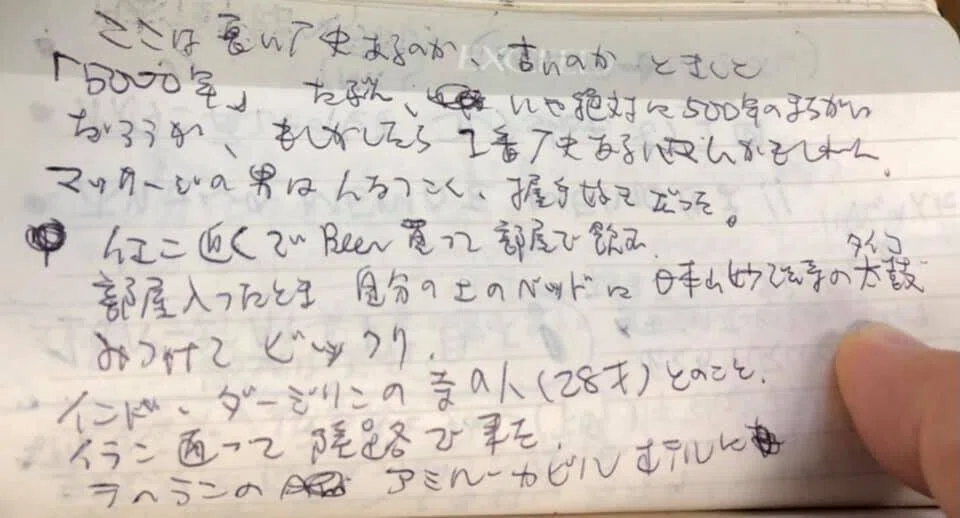 ここは長い歴史あるのか、古いのか ときくと
「5000年」 たぶん、いや絶対に500年のまちがい
だろうが、もしかしたら 1番歴史あるかもしれん。
マッサージの男は 、握手
近くでBeer買って部屋で飲む
部屋入ったとき 自分の上のベッドに 日本山妙法寺の太鼓
タイコ
みつけて ビックリ.
インド・ダージリンの寺の人(28才)とのこと.
イラン通って 陸路で来た.
テヘランの アミルーカビル ホテルに